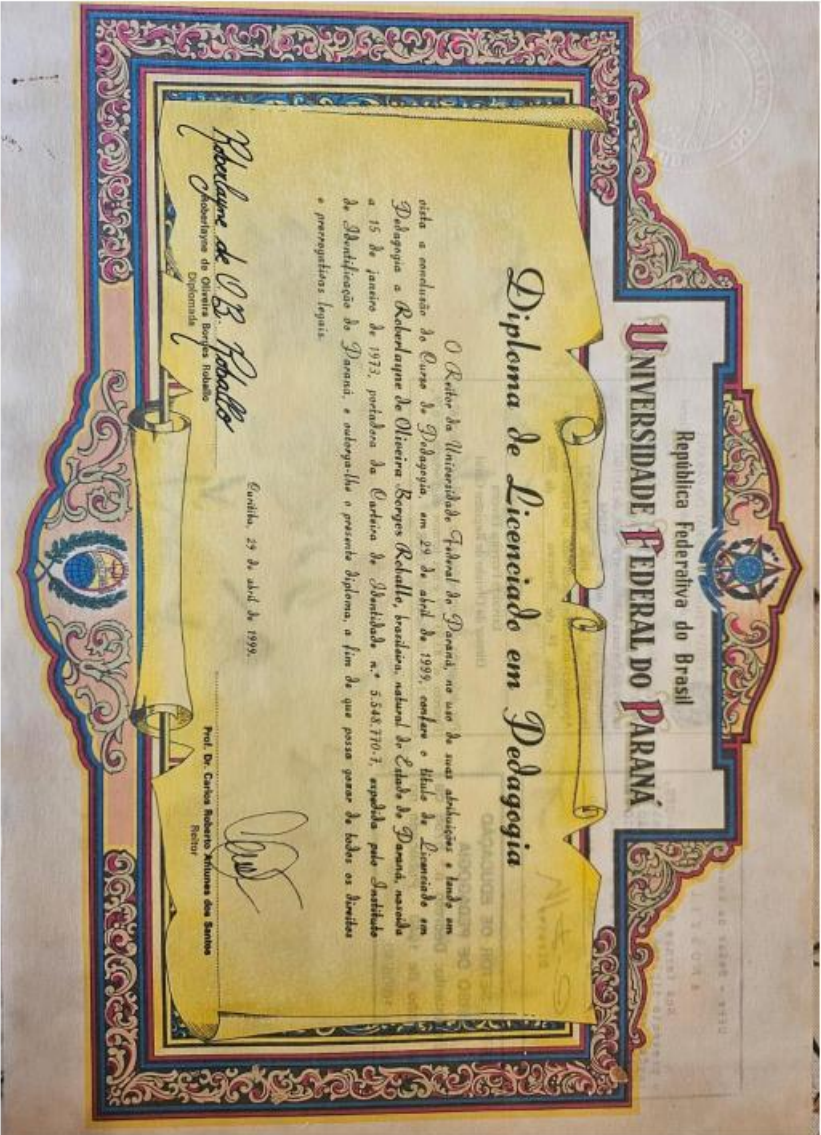 República Federativa do Brasil
UNIVERSIDADE FEDERAL DO PARANÁ
Diploma de Licenciado em Pedagogia
O Reitor da Universidade Federal do Paraná, no uso de suas atribuições e tendo em
vista a conclusão do Curso de Pedagogia, em 29 de abril de 1999, confere o título de Licenciado em
Pedagogia a Roberlayne de Oliveira Borges Roballo, brasileira, natural do Estado do Paraná, nascida
a 15 de janeiro de 1973, portadora da Carteira de Identidade n.º 5.548.770-7, expedida pelo Instituto
de Identificação do Paraná, e outorga-lhe o presente diploma, a fim de que possa gozar de todos os direitos
e prerrogativas legais.
Curitiba, 29 de abril de 1999.
Roberlayne de O. B. Roballo
Roberlayne de Oliveira Borges Roballo
Diplomada
Prof. Dr. Carlos Roberto Antunes dos Santos
Reitor